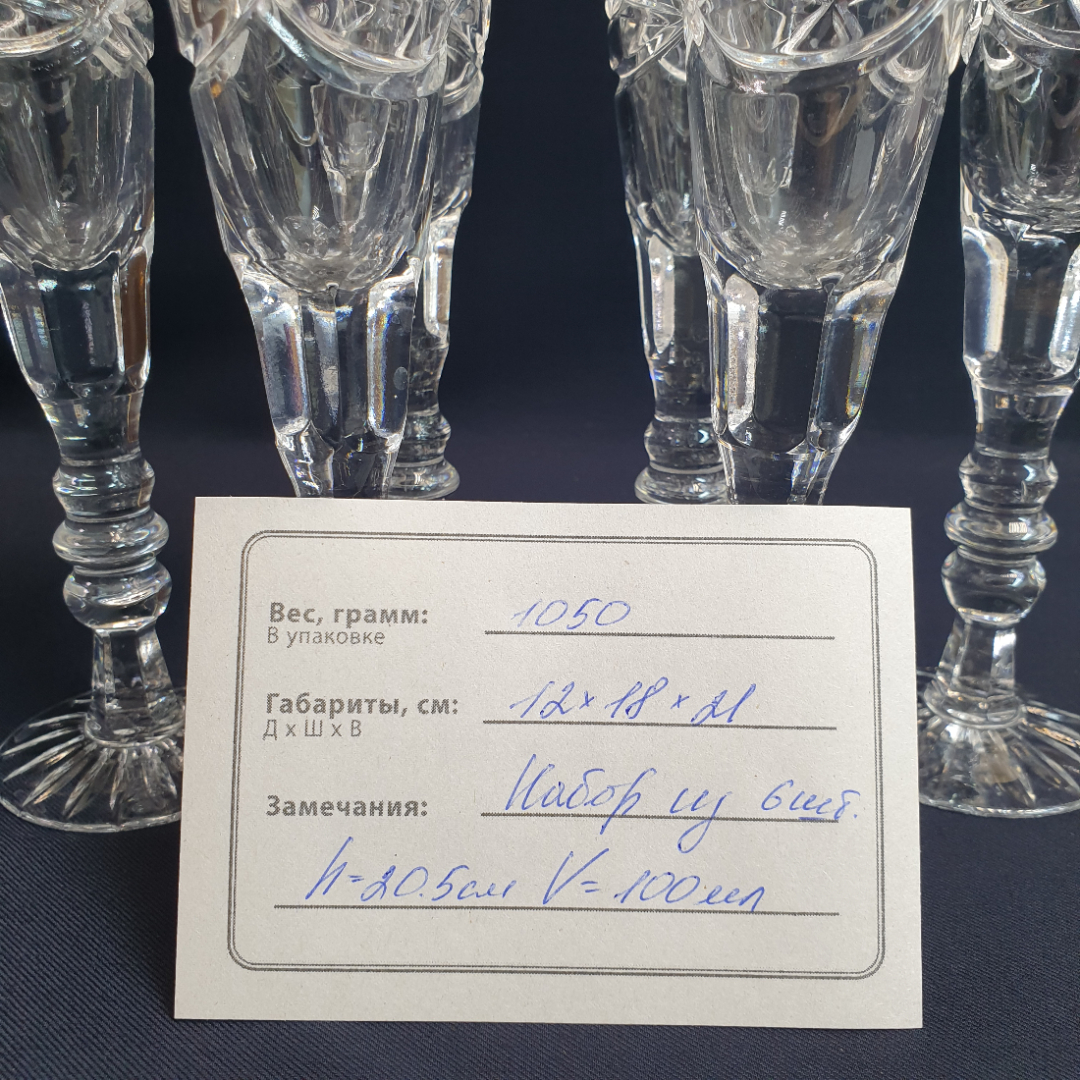 Вес, грамм: 1050
В упаковке
Габариты, см: 12 x 18 x 21
Д x Ш x В
Замечания: Набор из 6 шт.
h = 20.5 см V = 100 мл